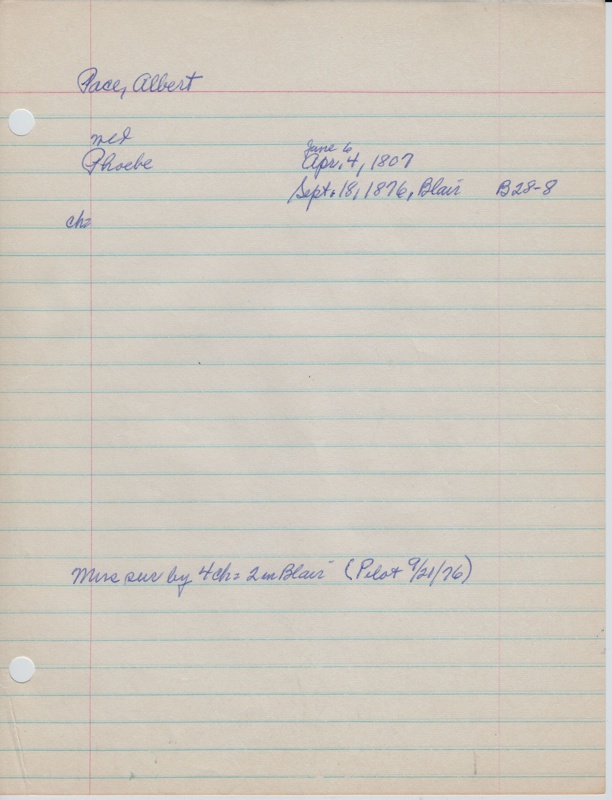 Pace, Albert
md
Phoebe
June 6
Apr. 4, 1807
Sept. 18, 1876, Blair B28-8
ch=
Mrs sur by 4 ch= 2 in Blair (Pilot 9/21/76)